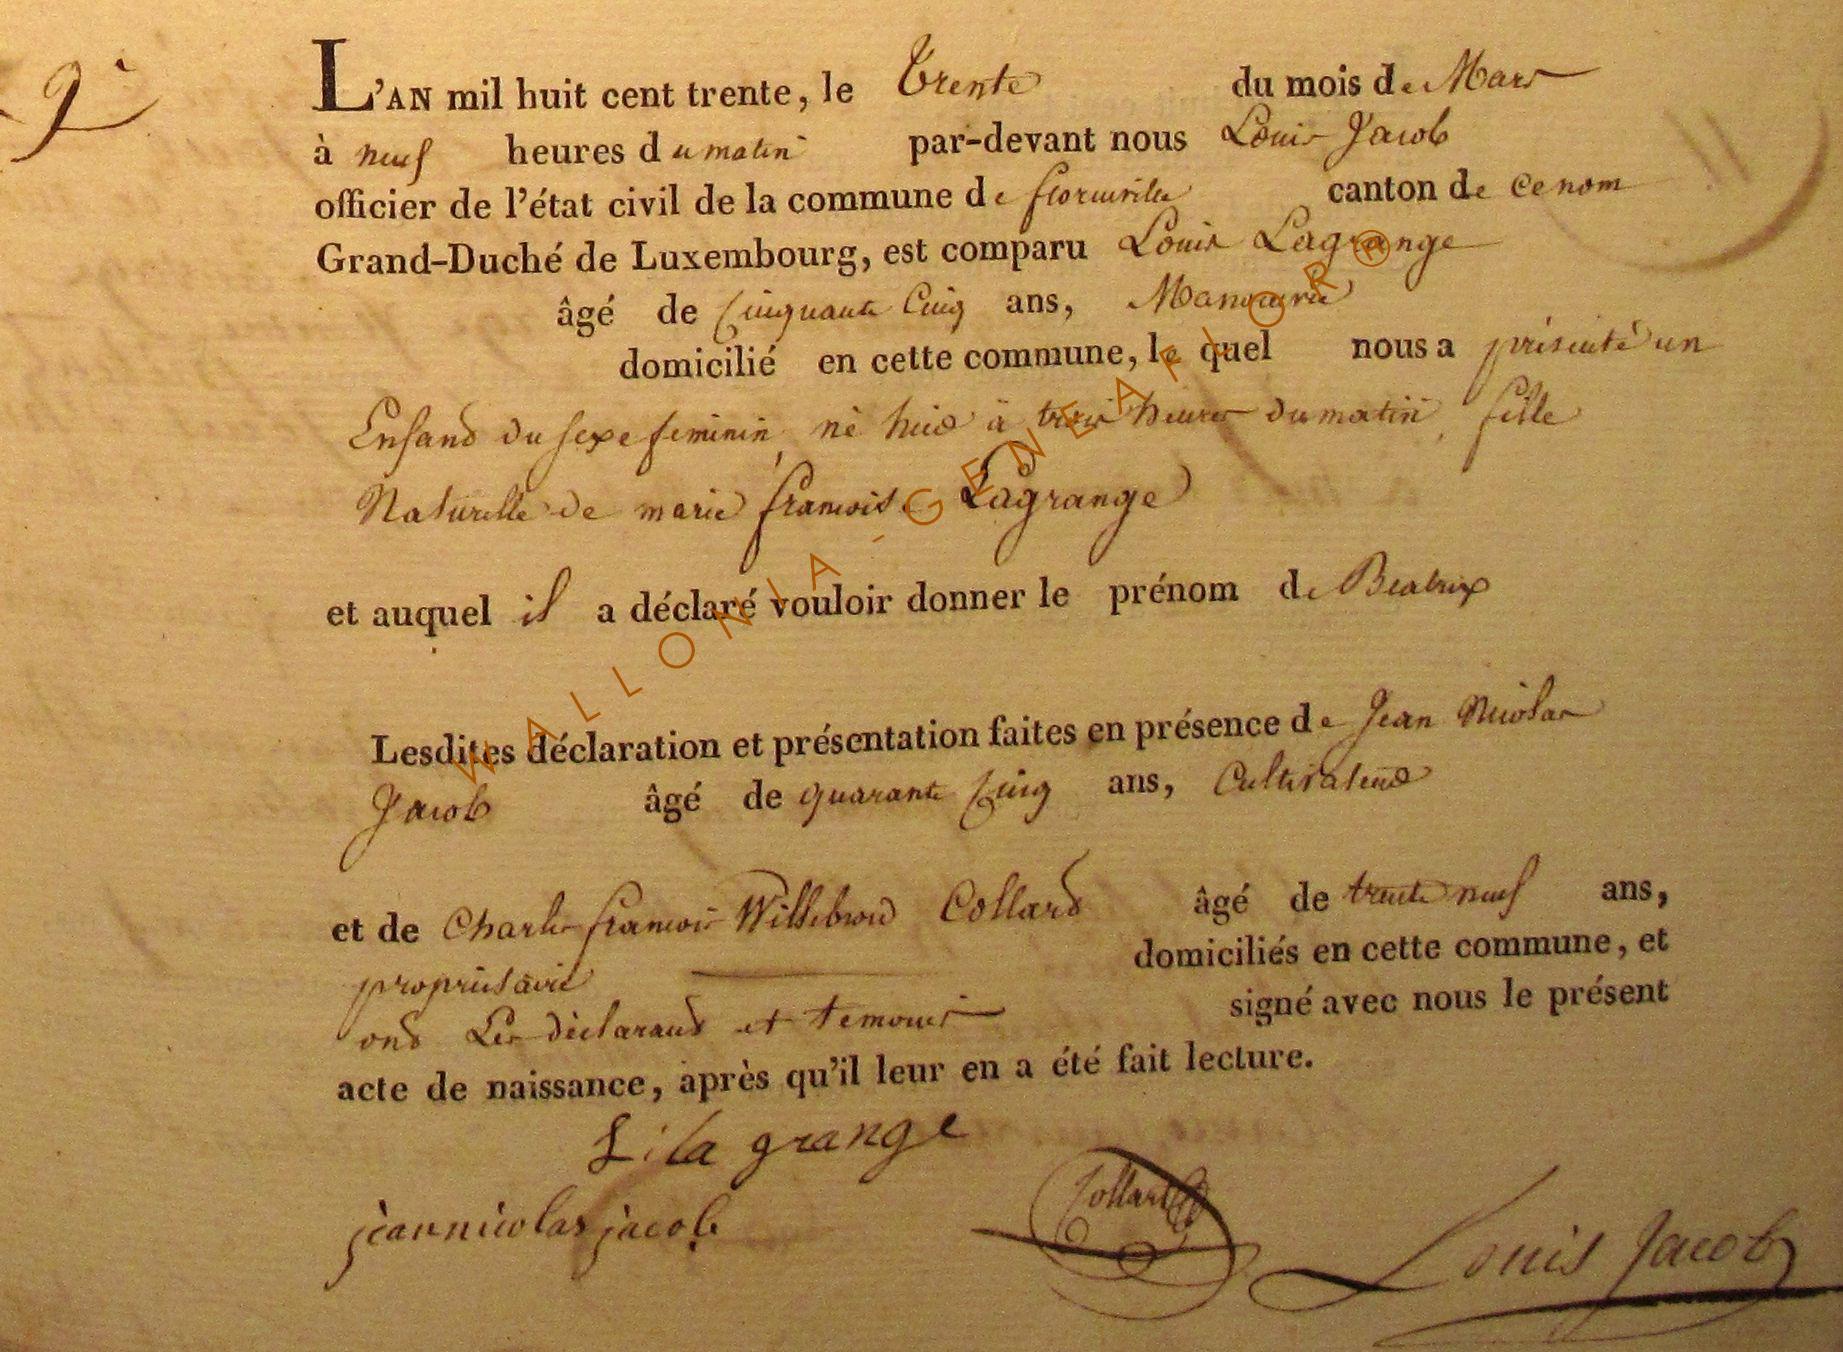 9e
L'AN mil huit cent trente, le Trente du mois de Mars
à neuf heures du matin par-devant nous Louis Jacob
officier de l'état civil de la commune de florenville canton de ce nom
Grand-Duché de Luxembourg, est comparu Louis Lagrange
âgé de Cinquante Cinq ans, Manouvrié
domicilié en cette commune, le quel nous a présenté un
Enfand du sexe feminin, né huid à trois heures du matin, fille
Naturelle de marie francoise Lagrange
et auquel il a déclaré vouloir donner le prénom de Beatrix
Lesdites déclaration et présentation faites en présence de Jean Nicolas
Jacob âgé de quarante Cinq ans, Cultivateur
et de Charles francois Willebrord Collard âgé de trente neuf ans,
propriétaire domiciliés en cette commune, et
ond Les déclarand et temouis signé avec nous le présent
acte de naissance, après qu'il leur en a été fait lecture.
L : la grange
jean nicolas jacob
Collard
Louis Jacob
WALLONIA-GENEAFLOR®